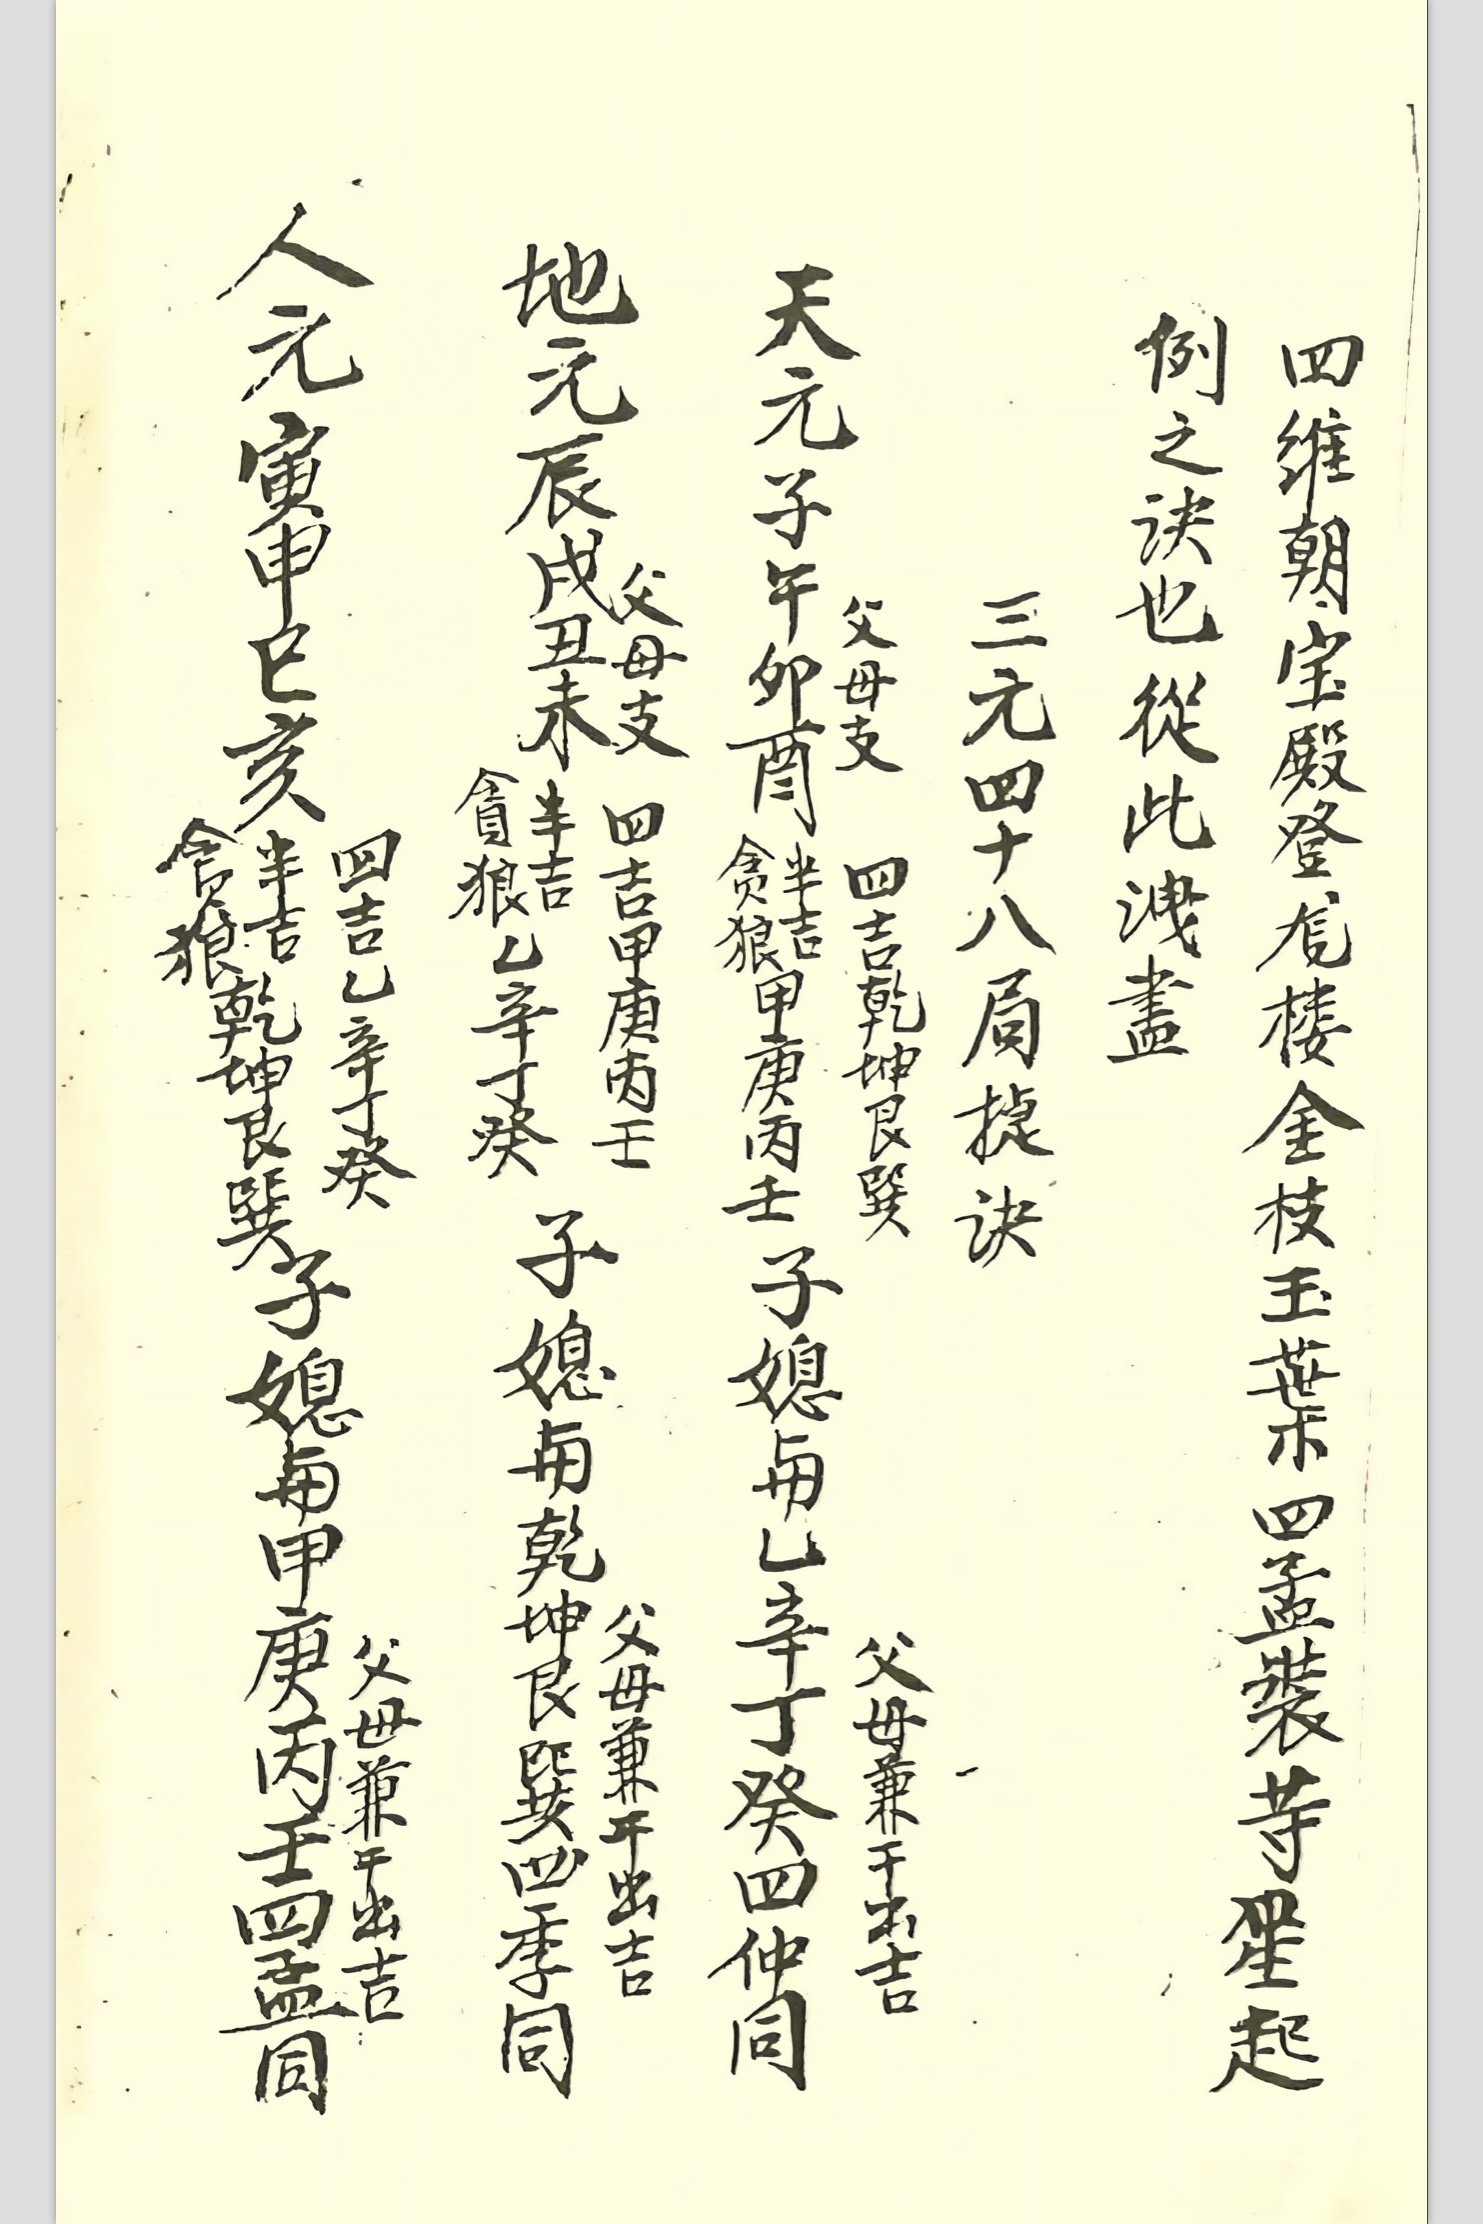 四维朝宝殿登凴楼金枝玉葉木四孟裝等星起
例之诀也從此洩盡
三元四十八局捷诀
天元子午卯酉
父母支
四吉乾坤艮巽
半吉
贪狼甲庚丙壬
子媳每乙辛丁癸四仲同
父母兼干出吉
地元辰戌丑未
父母支
四吉甲庚丙壬
半吉
貪狼乙辛丁癸
子媳每乾坤艮巽四季同
父母兼干出吉
人元寅申巳亥
四吉乙辛丁癸
半吉
貪狼乾坤艮巽
子媳每甲庚丙壬四孟同
父母兼干出吉